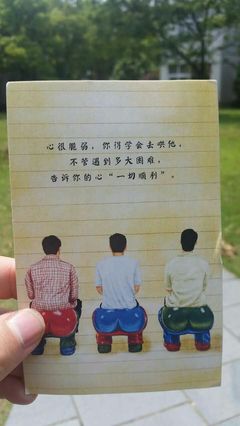 心很脆弱，你得学会去哄他，
不管遇到多大困难，
告诉你的心“一切顺利”。